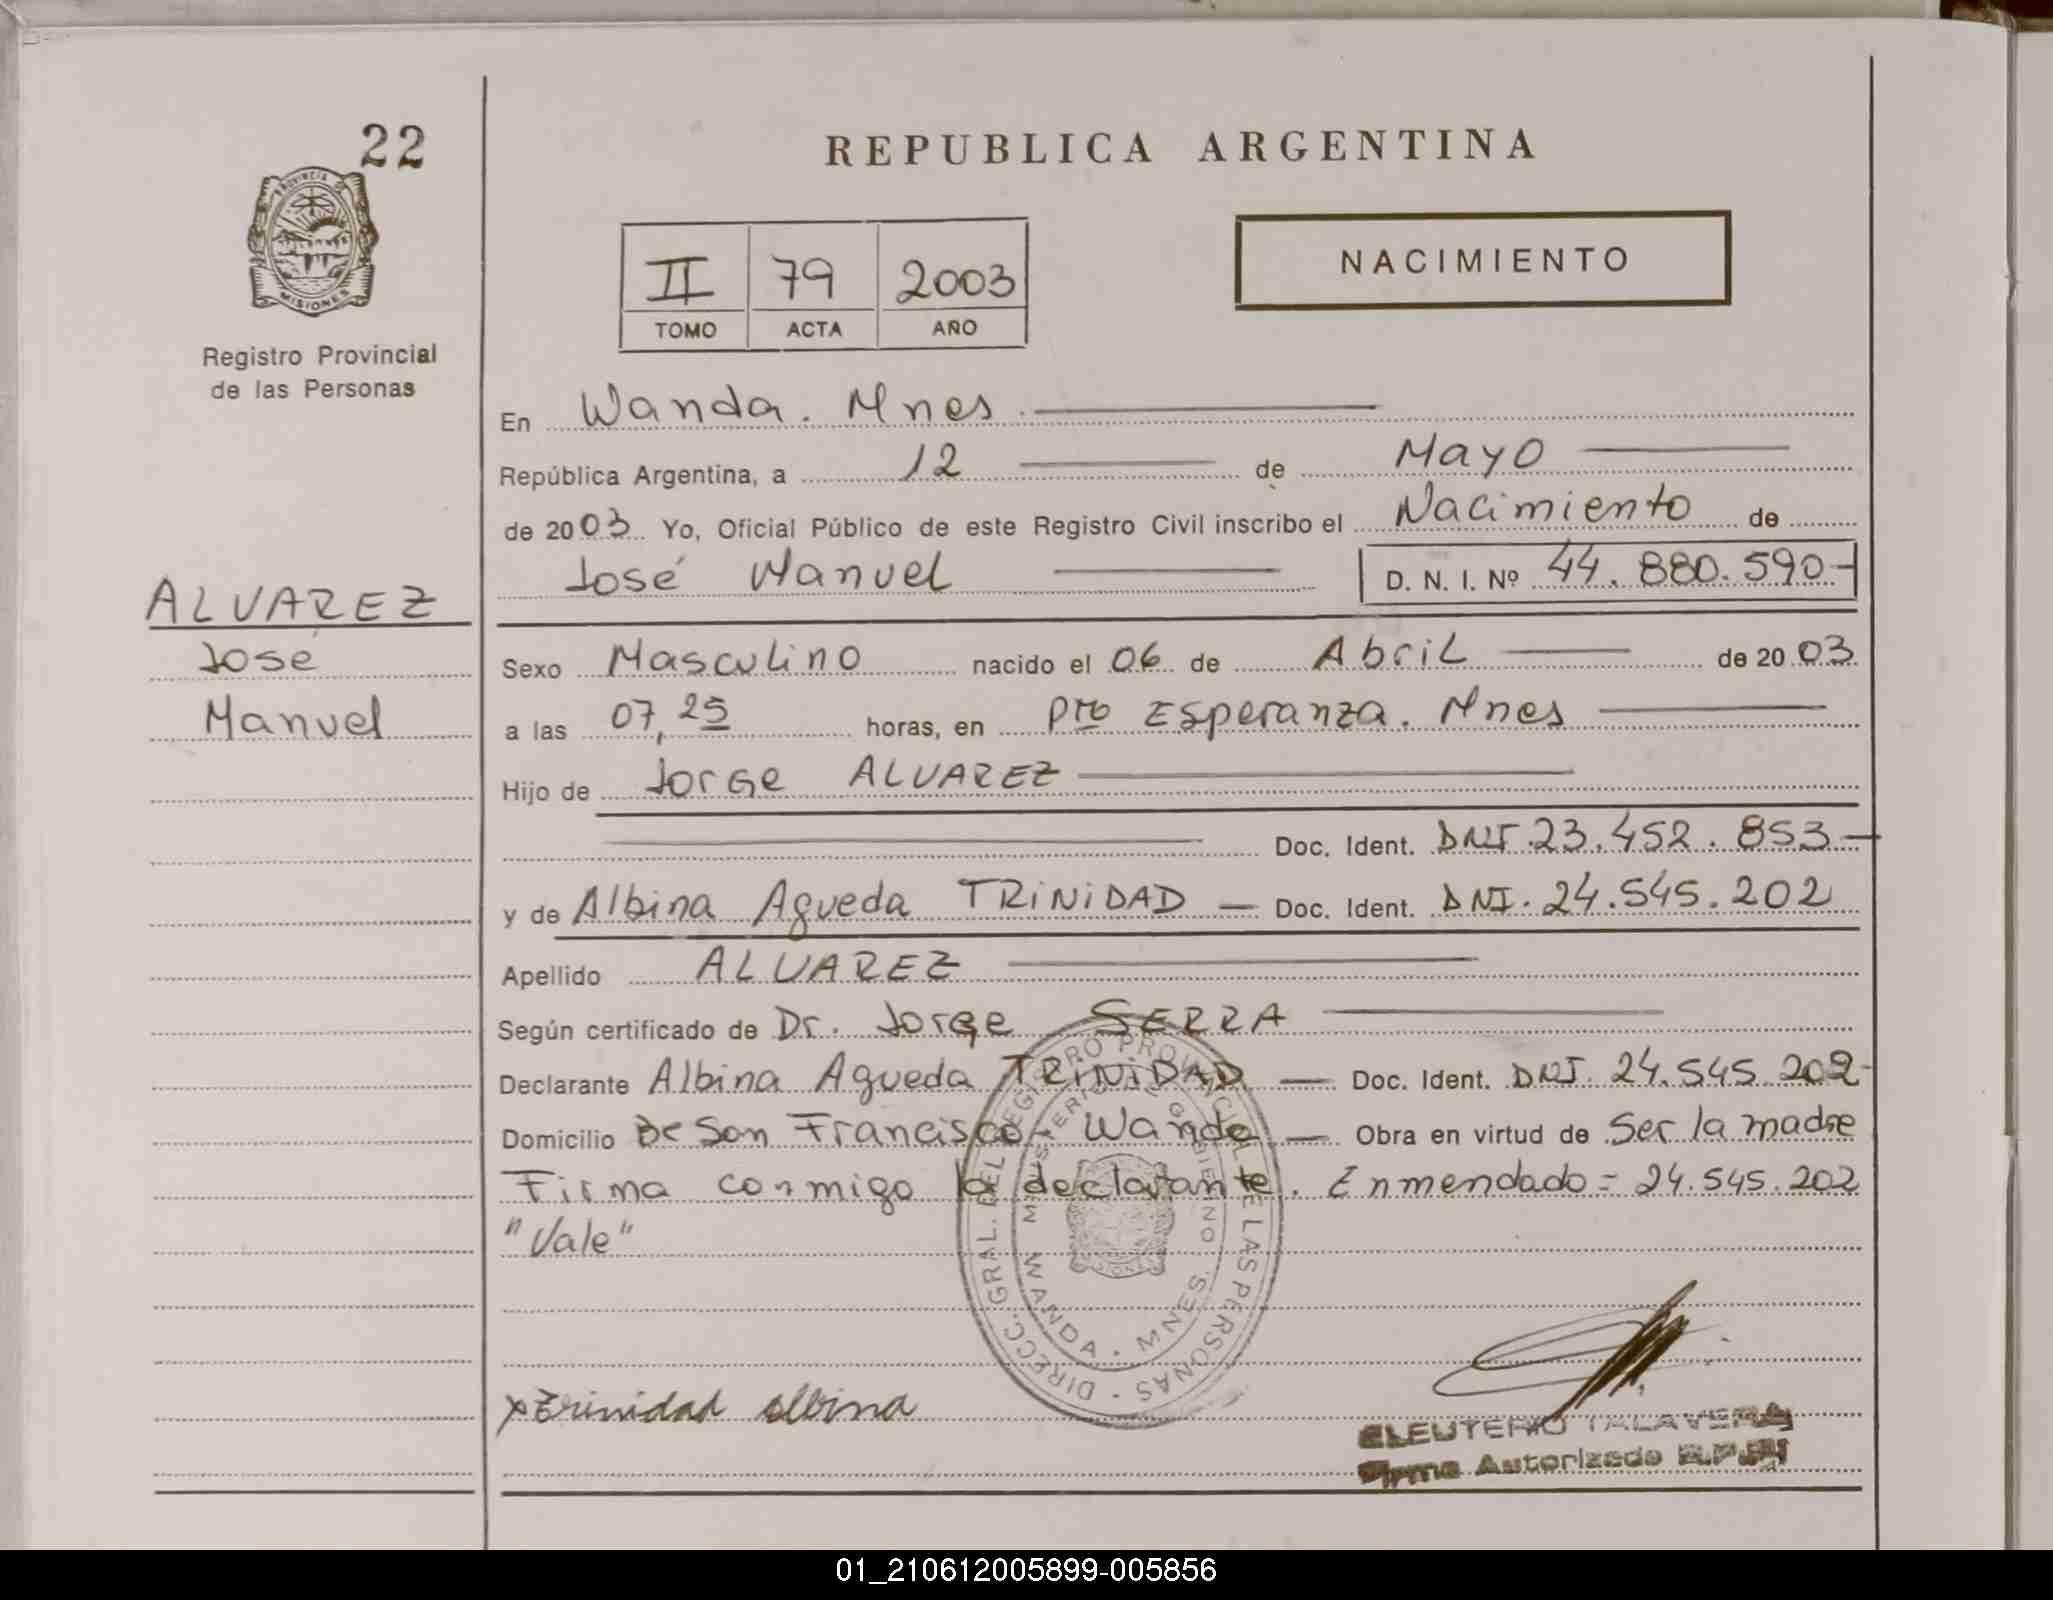 22
PROVINCIA DE
MISIONES
Registro Provincial
de las Personas
REPUBLICA ARGENTINA
II 79 2003
TOMO ACTA AÑO
NACIMIENTO
En Wanda. Mnes.
República Argentina, a 12 de Mayo
de 2003 Yo, Oficial Público de este Registro Civil inscribo el Nacimiento de
José Manuel D. N. I. Nº 44.880.590-
ALVAREZ
José
Manuel
Sexo Masculino nacido el 06 de Abril de 2003
a las 07,25 horas, en Pto Esperanza. Mnes
Hijo de Jorge ALVAREZ
Doc. Ident. DNI.23.452.853-
y de Albina Agueda TRINIDAD - Doc. Ident. DNI.24.545.202
Apellido ALVAREZ
Según certificado de Dr. Jorge SERRA
Declarante Albina Agueda TRINIDAD - Doc. Ident. DNI. 24.545.202-
Domicilio Bº San Francisco - Wanda - Obra en virtud de Ser la madre
Firma conmigo la declarante. Enmendado = 24.545.202
"Vale"
DIRECC. GRAL. DEL REGISTRO PROVINCIAL DE LAS PERSONAS
MINISTERIO DE GOBIERNO
WANDA - MNES.
x Trinidad Albina
ELEUTERIO TALAVERA
Firma Autorizada R.P.P.
01_210612005899-005856